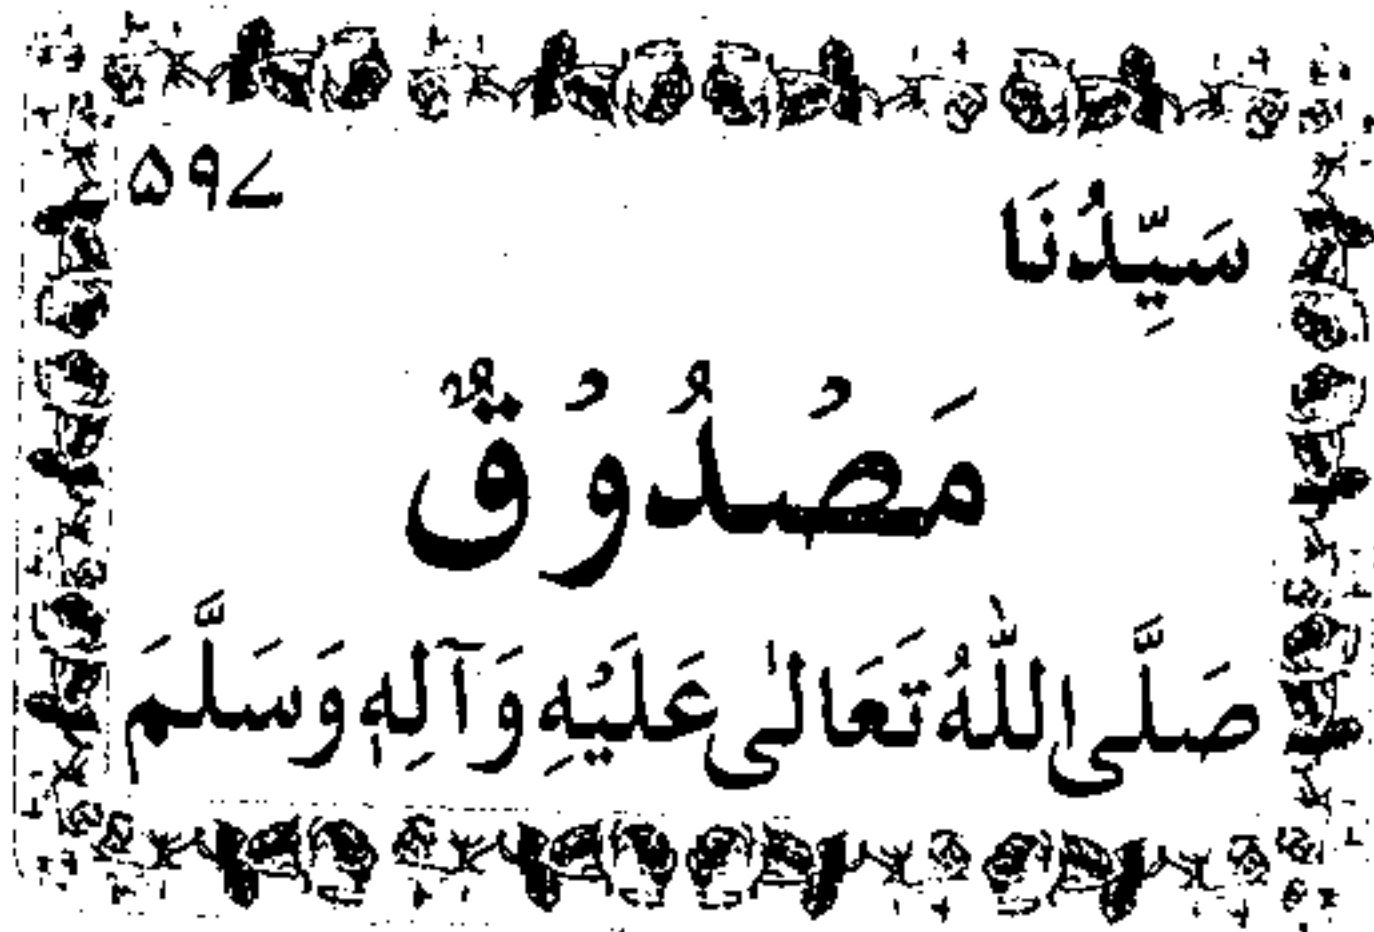 ۵۹۷
سَیِّدُنَا
مَصْدُوْقٌ
صَلَّی اللّٰهُ تَعَالٰی عَلَیْهِ وَآلِهٖ وَسَلَّمَ